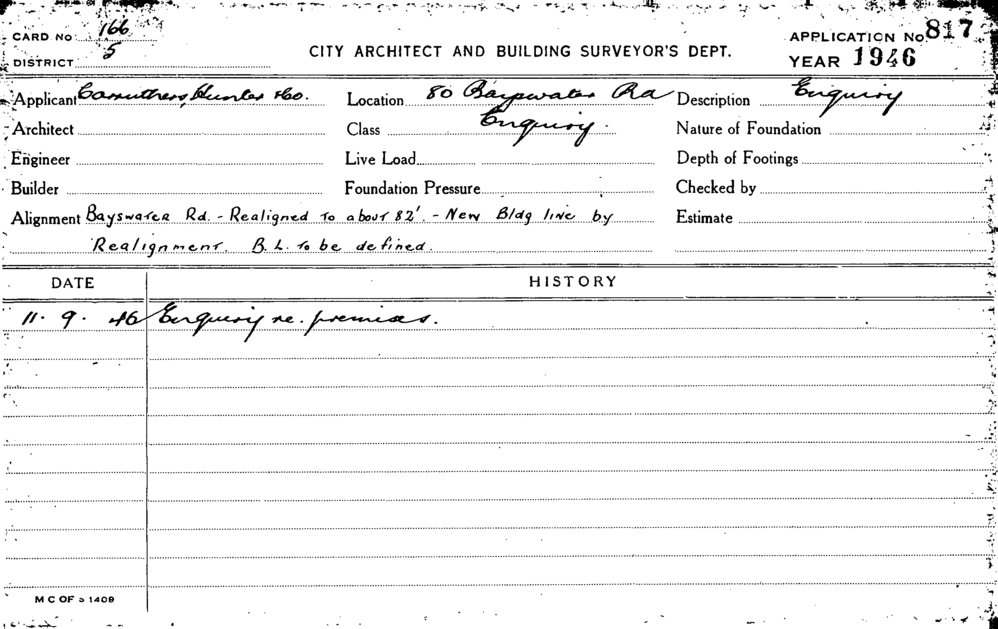 CARD No 166
DISTRICT 5
CITY ARCHITECT AND BUILDING SURVEYOR'S DEPT.
APPLICATION No 817
YEAR 1946
Applicant Carruthers, Hunter & Co. Location 80 Bayswater Rd Description Enquiry
Architect Class Enquiry. Nature of Foundation
Engineer Live Load Depth of Footings
Builder Foundation Pressure Checked by
Alignment Bayswater Rd. - Realigned to about 82'. - New Bldg line by Estimate
Realignment. B.L. to be defined.
DATE HISTORY
11. 9. 46 Enquiry re. premises.
M C OF S 1409